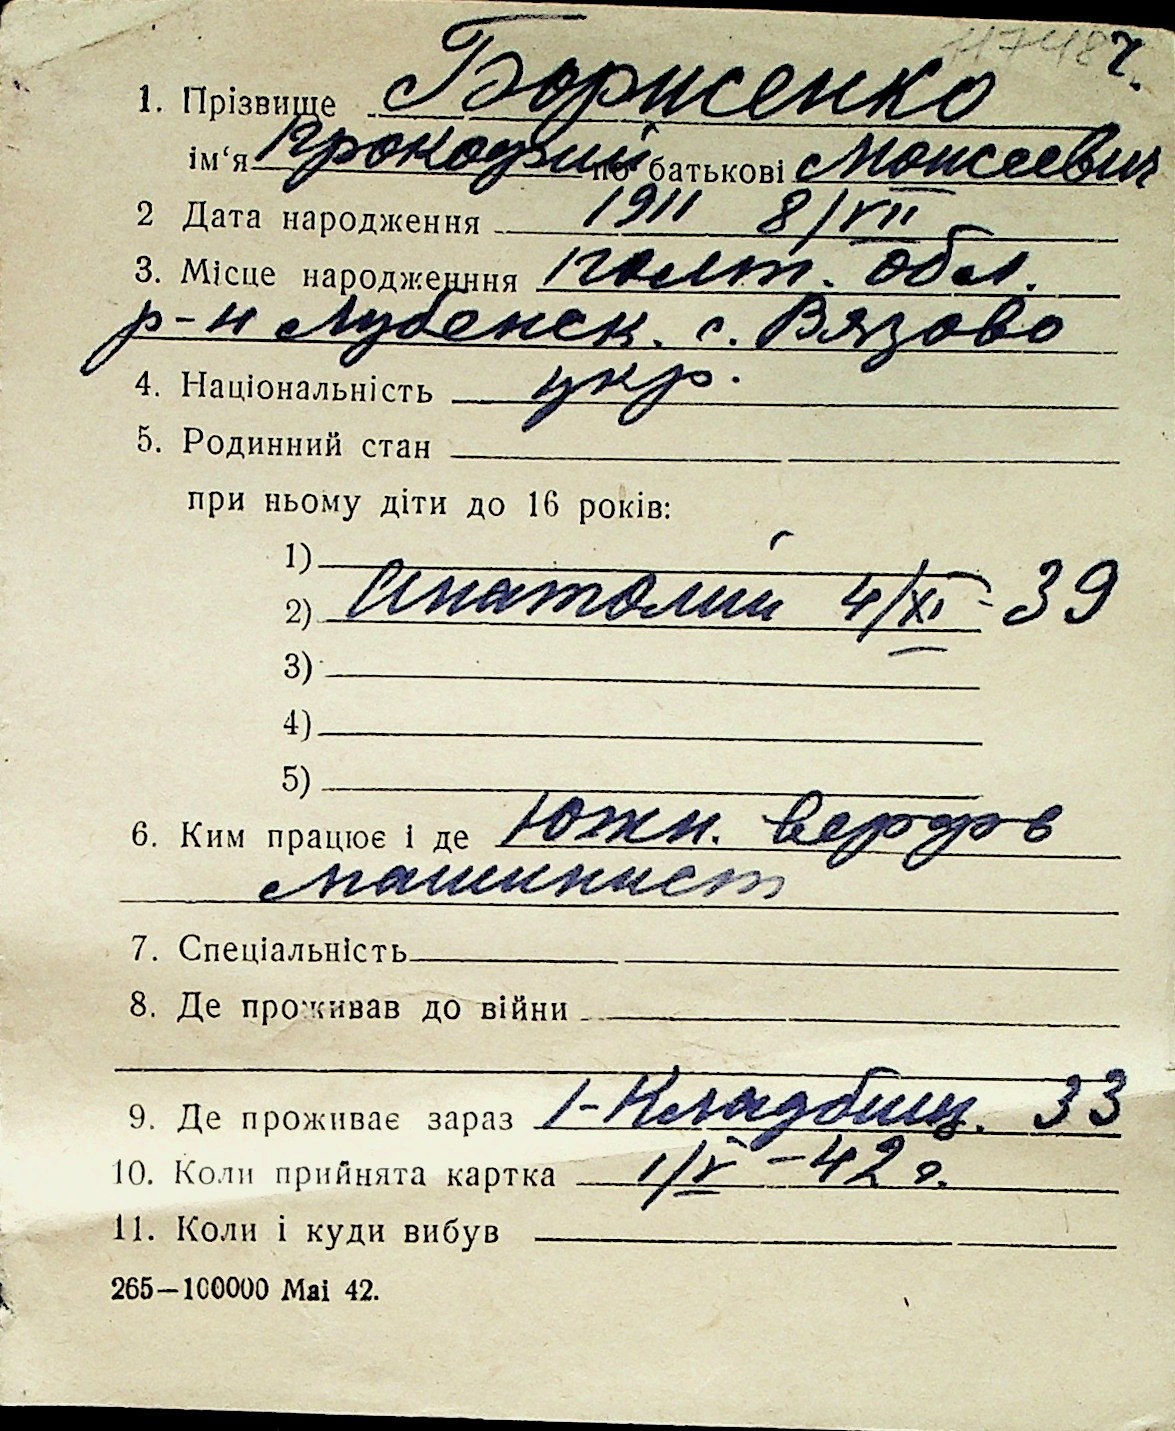 117487.
1. Прізвище Борисенко
ім'я Прокофий по батькові Моисеевич
2 Дата народження 1911 8/VII
3. Місце народженння Полт. обл.
р-н Лубенск. с. Вязово
4. Національність укр.
5. Родинний стан
при ньому діти до 16 років:
1)
2) Анатолий 4/XI - 39
3)
4)
5)
6. Ким працює і де Южн. верфь
машинист
7. Спеціальність
8. Де проживав до війни
9. Де проживає зараз 1-Кладбищ. 33
10. Коли прийнята картка 1/V - 42 г.
11. Коли і куди вибув
265—100000 Mai 42.